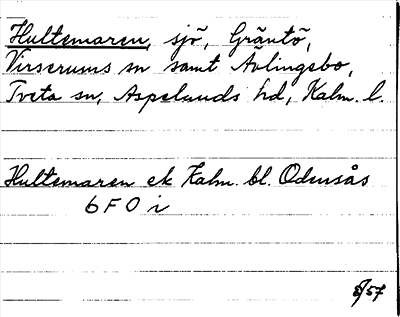 Hultemaren, sjö, Gräntö,
Virserums sn samt Åvlingebo,
Tveta sn, Aspelands hd, Kalm. l.
Hultemaren ek Kalm. bl. Odensås
6 F 0 i
57